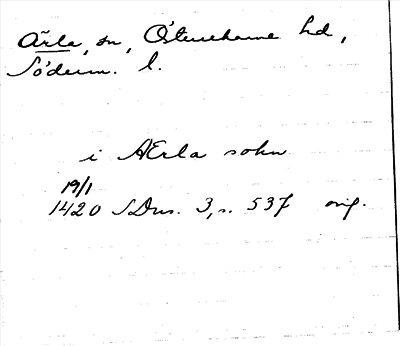 Ärla, sn, Österrekarne hd,
Söderm. l.
i AErla sokn
19/1
1420 SDns. 3, s. 537 orig.